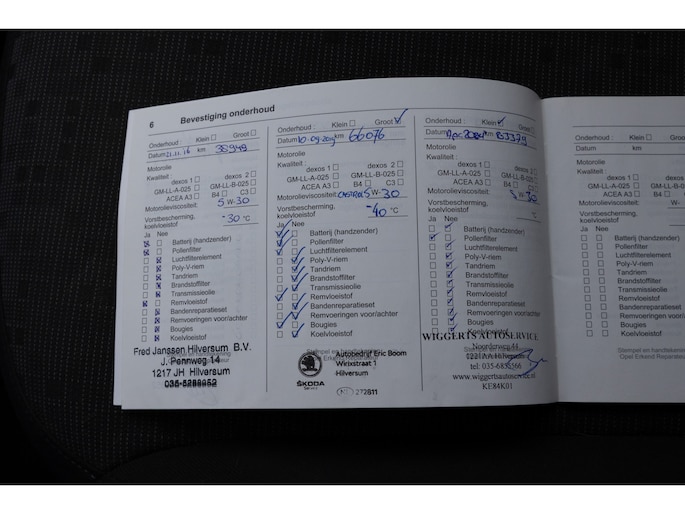 6 Bevestiging onderhoud
Onderhoud : Klein Groot
Datum 21.11.16 km 38949
Motorolie
Kwaliteit :
dexos 1 dexos 2
GM-LL-A-025 GM-LL-B-025
ACEA A3 B4 C3
Motorolieviscositeit:
5 W-30
Vorstbescherming,
koelvloeistof -30 °C
Ja Nee
Batterij (handzender)
Pollenfilter
Luchtfilterelement
Poly-V-riem
Tandriem
Brandstoffilter
Transmissieolie
Remvloeistof
Bandenreparatieset
Remvoeringen voor/achter
Bougies
Koelvloeistof
Fred Janssen Hilversum B.V.
J. Pennweg 14
1217 JH Hilversum
Onderhoud : Klein Groot
Datum 10-09-2019 km 66076
Motorolie
Kwaliteit :
dexos 1 dexos 2
GM-LL-A-025 GM-LL-B-025
ACEA A3 B4 C3
Motorolieviscositeit: CASTROL 5 W-30
Vorstbescherming,
koelvloeistof -40 °C
Ja Nee
Batterij (handzender)
Pollenfilter
Luchtfilterelement
Poly-V-riem
Tandriem
Brandstoffilter
Transmissieolie
Remvloeistof
Bandenreparatieset
Remvoeringen voor/achter
Bougies
Koelvloeistof
ŠKODA
Service
Autobedrijf Eric Boom
Wirixstraat 1
Hilversum
272811
Onderhoud : Klein Groot
Datum km
Motorolie
Kwaliteit :
dexos 1 dexos 2
GM-LL-A-025 GM-LL-B-025
ACEA A3 B4 C3
Motorolieviscositeit:
5 W-30
Vorstbescherming,
koelvloeistof °C
Ja Nee
Batterij (handzender)
Pollenfilter
Luchtfilterelement
Poly-V-riem
Tandriem
Brandstoffilter
Transmissieolie
Remvloeistof
Bandenreparatieset
Remvoeringen voor/achter
Bougies
Koelvloeistof
WIGGERTS AUTOSERVICE
Noorderweg 44
1221AA Hilversum
www.wiggertsautoservice.nl
KE84K01
Onderhoud : Klein
Datum km
Motorolie
Kwaliteit :
dexos 1
GM-LL-A-025
ACEA A3
Motorolieviscositeit:
W-
Vorstbescherming,
koelvloeistof
Ja Nee
Batterij (handzender)
Pollenfilter
Luchtfilterelement
Poly-V-riem
Tandriem
Brandstoffilter
Transmissieolie
Remvloeistof
Bandenreparatieset
Remvoeringen voor
Bougies
Koelvloeistof
Stempel en
Opel Erkend